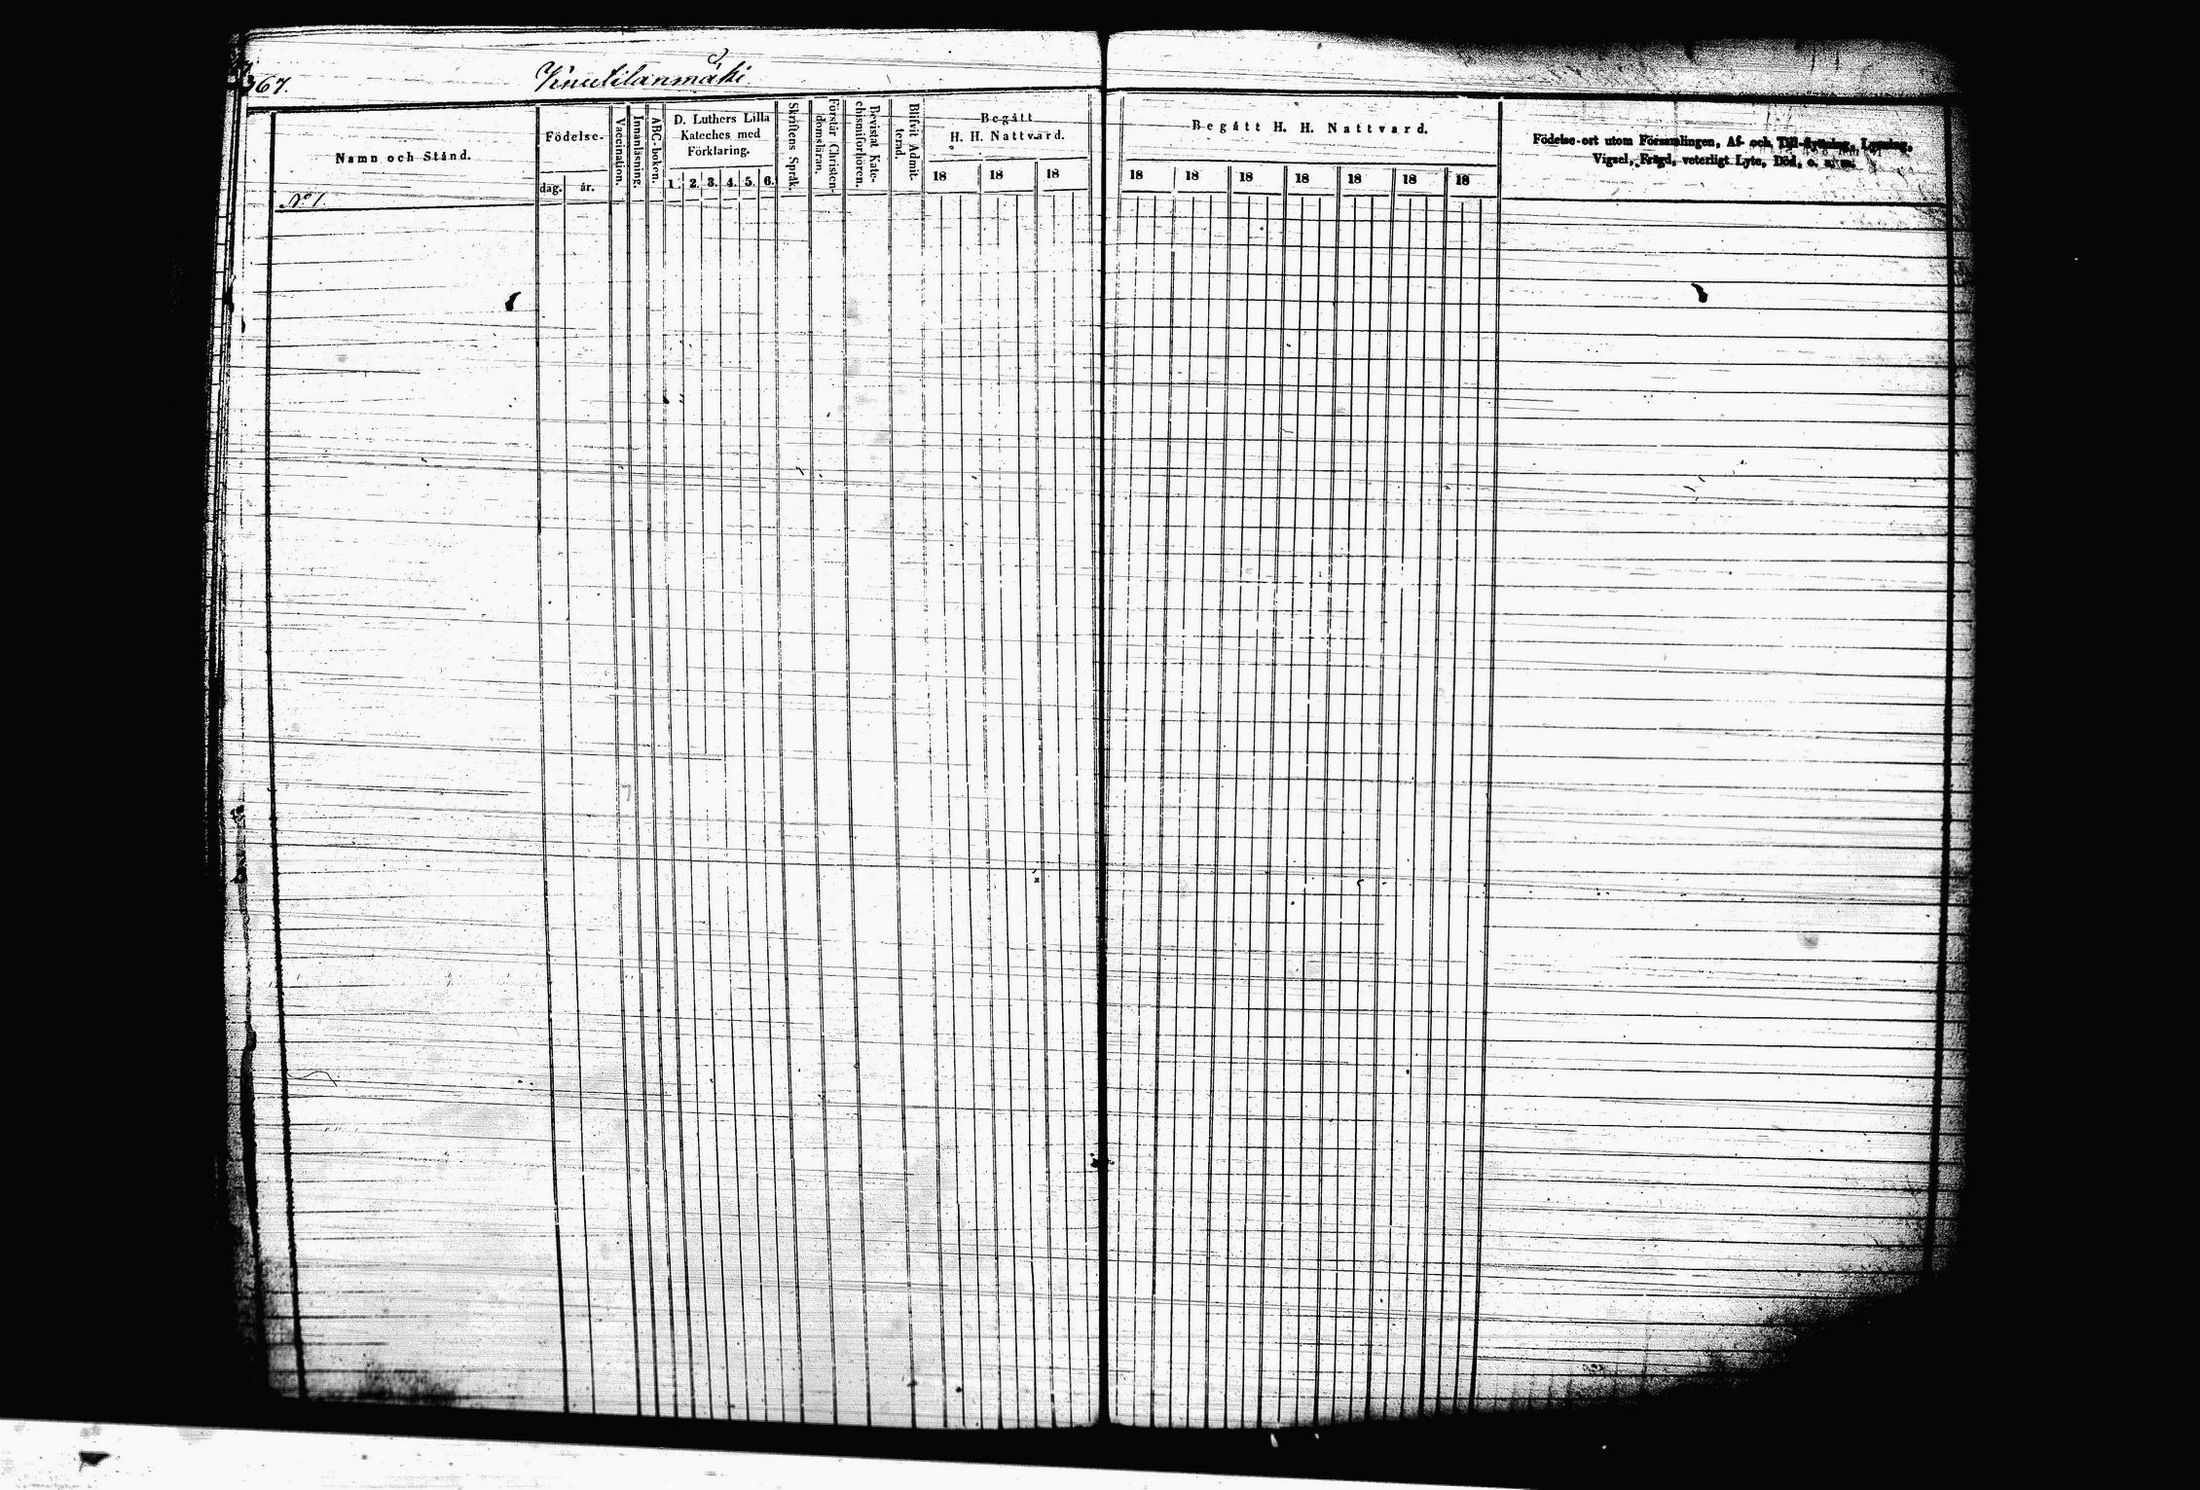 367.
Knutilanmäki
Namn och Stånd.
Födelse-
dag.
år.
Vaccination.
Innanläsning.
ABC-boken.
D. Luthers Lilla
Kateches med
Förklaring.
1. 2. 3. 4. 5. 6.
Skriftens Språk.
Förstår Christen-
domsläran.
Bevistat Kate-
chismiförhören.
Blifvit Admit-
terad.
Begått
H. H. Nattvard.
18 18 18
N:o 1.
Begått H. H. Nattvard.
18 18 18 18 18 18 18
Födelse-ort utom Församlingen, Af- och Till-flyttning, Lysning,
Vigsel, Frägd, veterligt Lyte, Död, o. s. m.